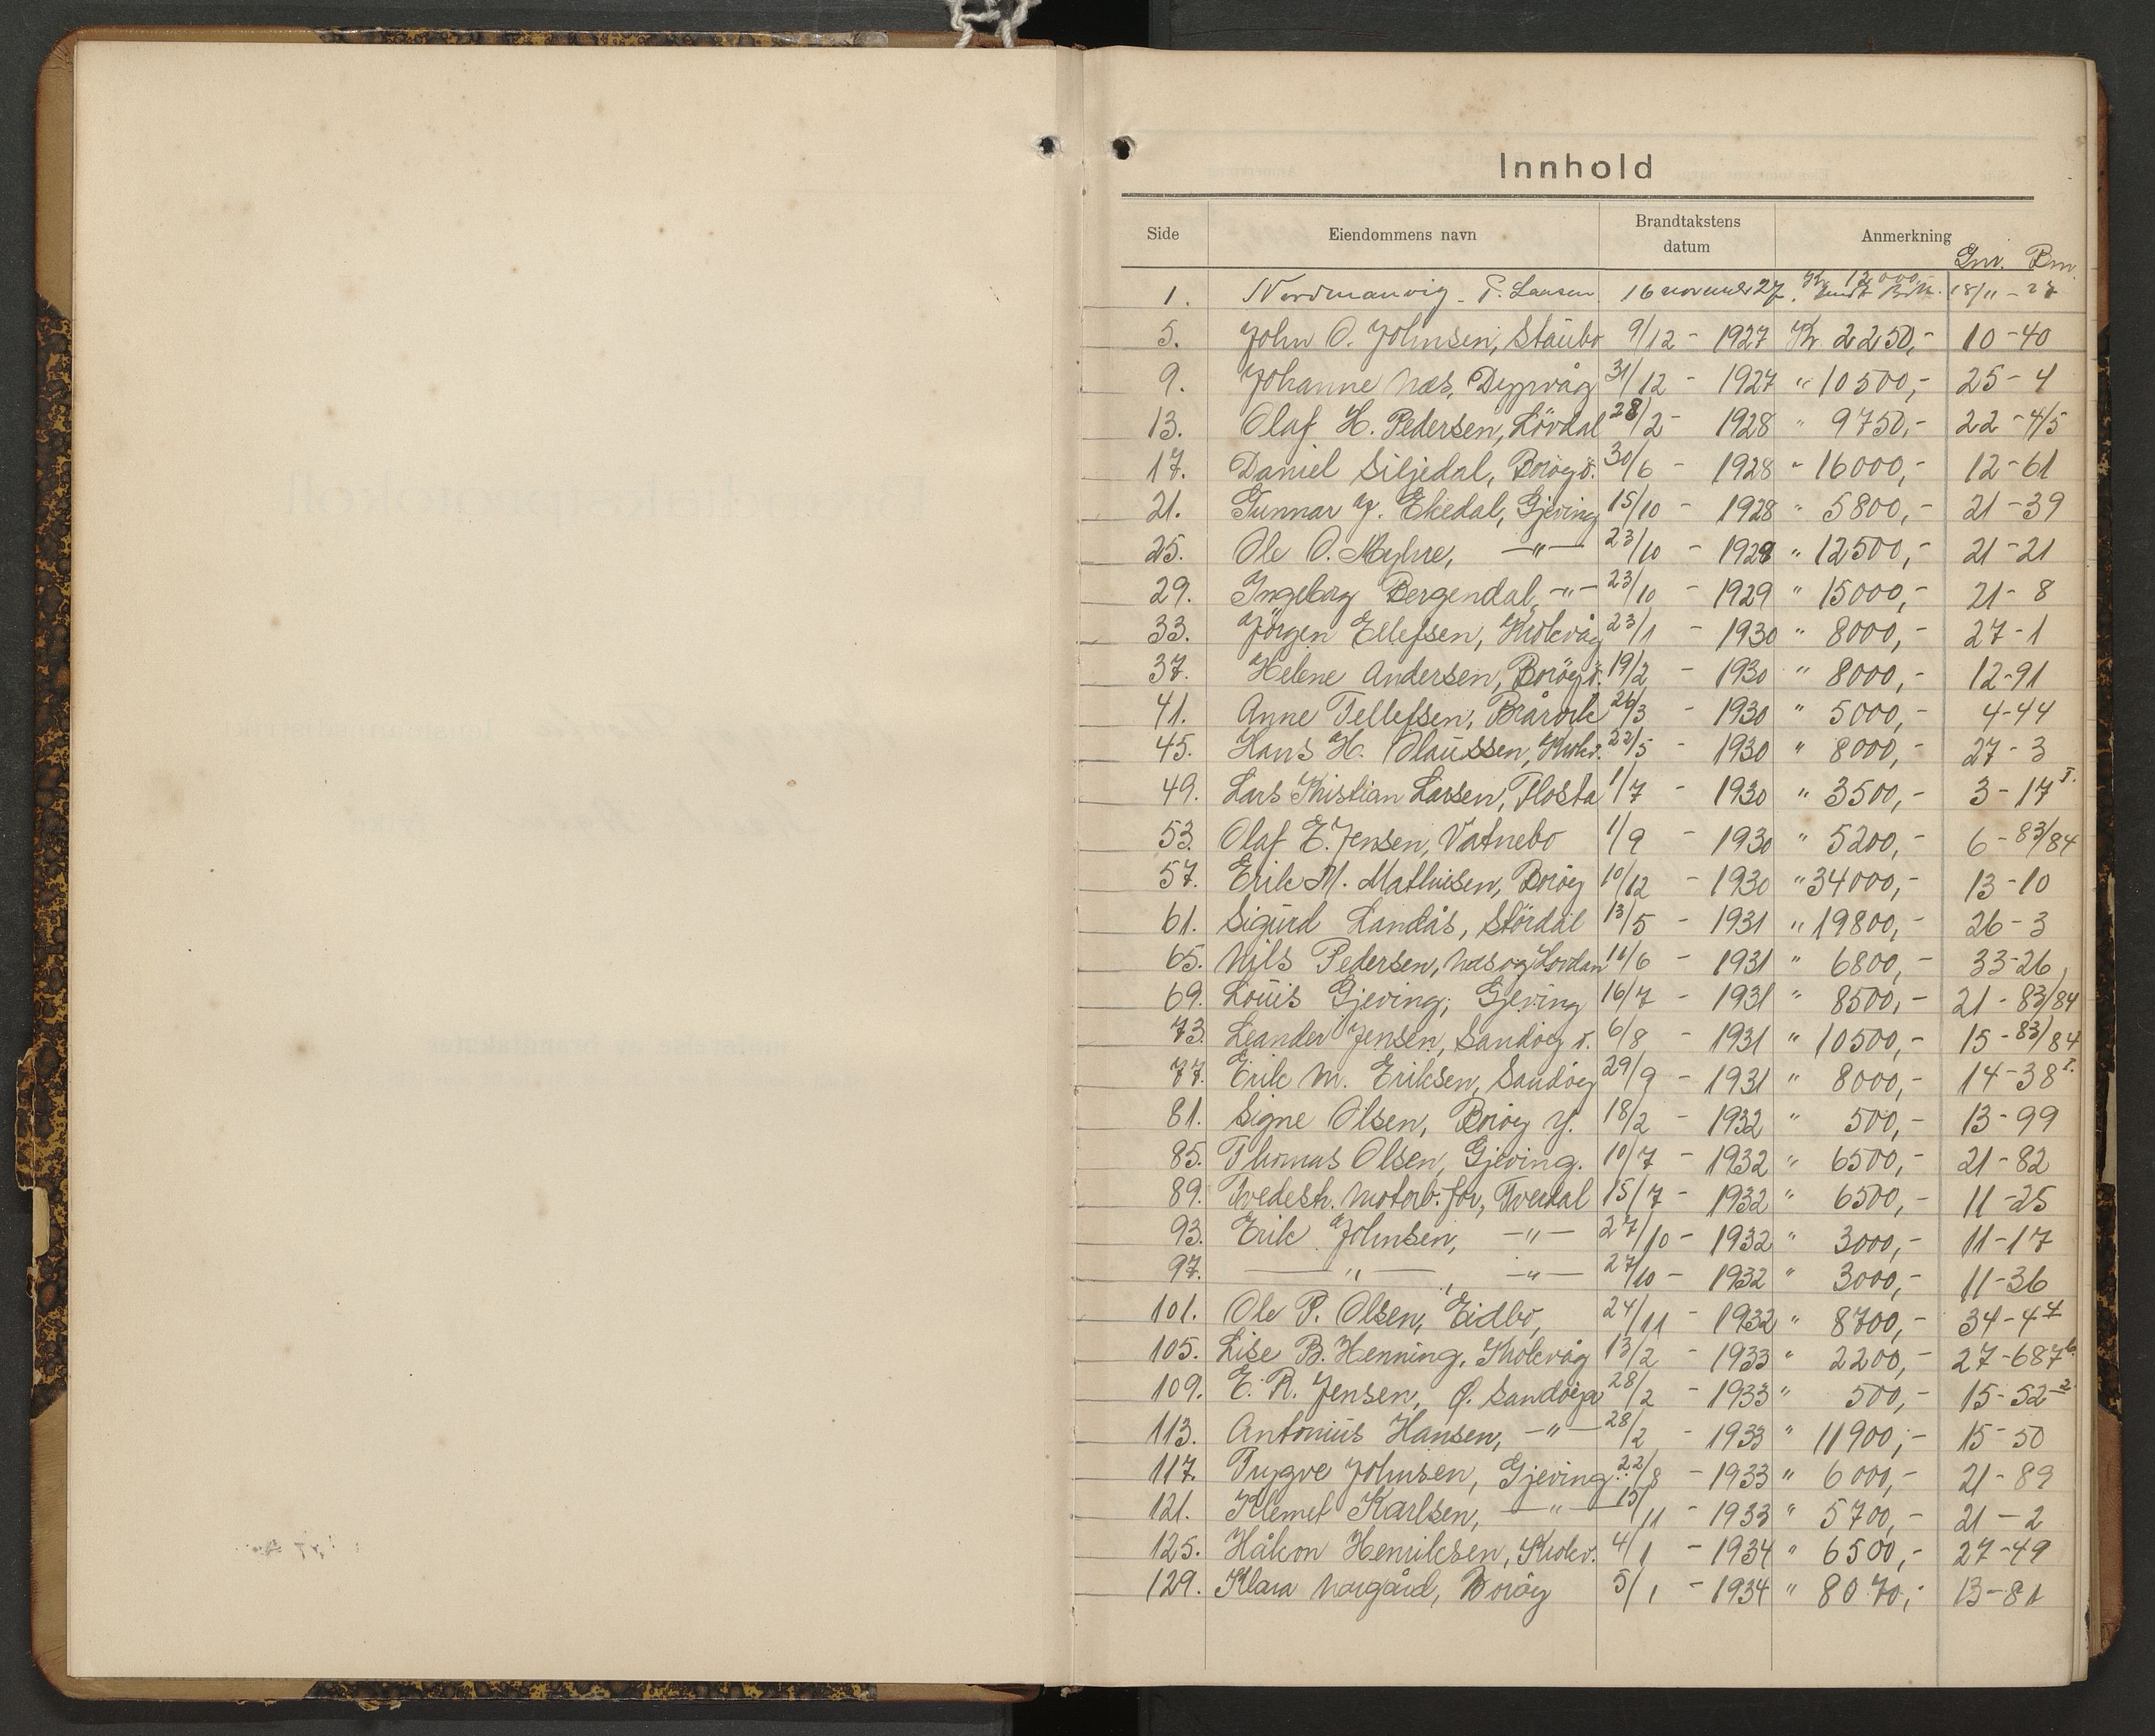 Innhold
Side Eiendommens navn Brandtakstens datum Anmerkning Gnr. Bnr.
1. Nordmanvig - P. Larsen 16 november 27. Kr 12000,- sendt 18/11 - 27
5. John O. Johnsen, Staubo 9/12 - 1927 Kr 2250,- 10-40
9. Johanne Næs, Dypvåg 31/12 - 1927 " 10500,- 25-4
13. Olaf H. Pedersen, Lövdal 28/2 - 1928 " 9750,- 22-4/5
17. Daniel Siljedal, Boröy ö. 30/6 - 1928 " 16000,- 12-61
21. Gunnar J. Ekedal, Gjeving 15/10 - 1928 " 5800,- 21-39
25. Ole O. Myhre, -"- 23/10 - 1929 " 12500,- 21-21
29. Ingeborg Bergendal, -"- 23/10 - 1929 " 15000,- 21-8
33. Jörgen Ellefsen, Krokvåg 23/1 - 1930 " 8000,- 27-1
37. Helene Andersen, Boröy ö. 19/2 - 1930 " 8000,- 12-91
41. Anne Tellefsen, Bråröt 26/3 - 1930 " 5000,- 4-44
45. Hans H. Olaussen, Krokv. 22/5 - 1930 " 8000,- 27-3
49. Lars Kristian Larsen, Flosta 1/7 - 1930 " 3500,- 3-17 I.
53. Olaf E. Jensen, Vatnebo 1/9 - 1930 " 5200,- 6-83/84
57. Erik M. Mathisen, Boröy 10/12 - 1930 " 34000,- 13-10
61. Sigurd Landås, Stördal 13/5 - 1931 " 19800,- 26-3
65. Nils Pedersen, Næs og Hovdan 11/6 - 1931 " 6800,- 33-26
69. Louis Gjeving, Gjeving 16/7 - 1931 " 8500,- 21-83/84
73. Leander Jensen, Sandöy ö. 6/8 - 1931 " 10500,- 15-83/84
77. Erik M. Eriksen, Sandöy 29/9 - 1931 " 8000,- 14-38 I.
81. Signe Olsen, Boröy y. 18/2 - 1932 " 500,- 13-99
85. Thomas Olsen, Gjeving. 10/7 - 1932 " 6500,- 21-82
89. Tvedestr. Motorb. for, Tverdal 15/7 - 1932 " 6500,- 11-25
93. Erik Johnsen, -"- 27/10 - 1932 " 3000,- 11-17
97. -"-, -"- 27/10 - 1932 " 3000,- 11-36
101. Ole P. Olsen, Eidbo, 24/11 - 1932 " 8700,- 34-47
105. Lise B. Henning, Krokvåg 13/2 - 1933 " 2200,- 27-687
109. E. R. Jensen, Ö. Sandöya 28/2 - 1933 " 500,- 15-52 2
113. Antonius Hansen, -"- 28/2 - 1933 " 11900,- 15-50
117. Trygve Johnsen, Gjeving 22/8 - 1933 " 6000,- 21-89
121. Klemet Karlsen, -"- 15/11 - 1933 " 5700,- 21-2
125. Håkon Henriksen, Krokv. 4/1 - 1934 " 6500,- 27-49
129. Klara Norgård, Boröy 5/1 - 1934 " 8070,- 13-81